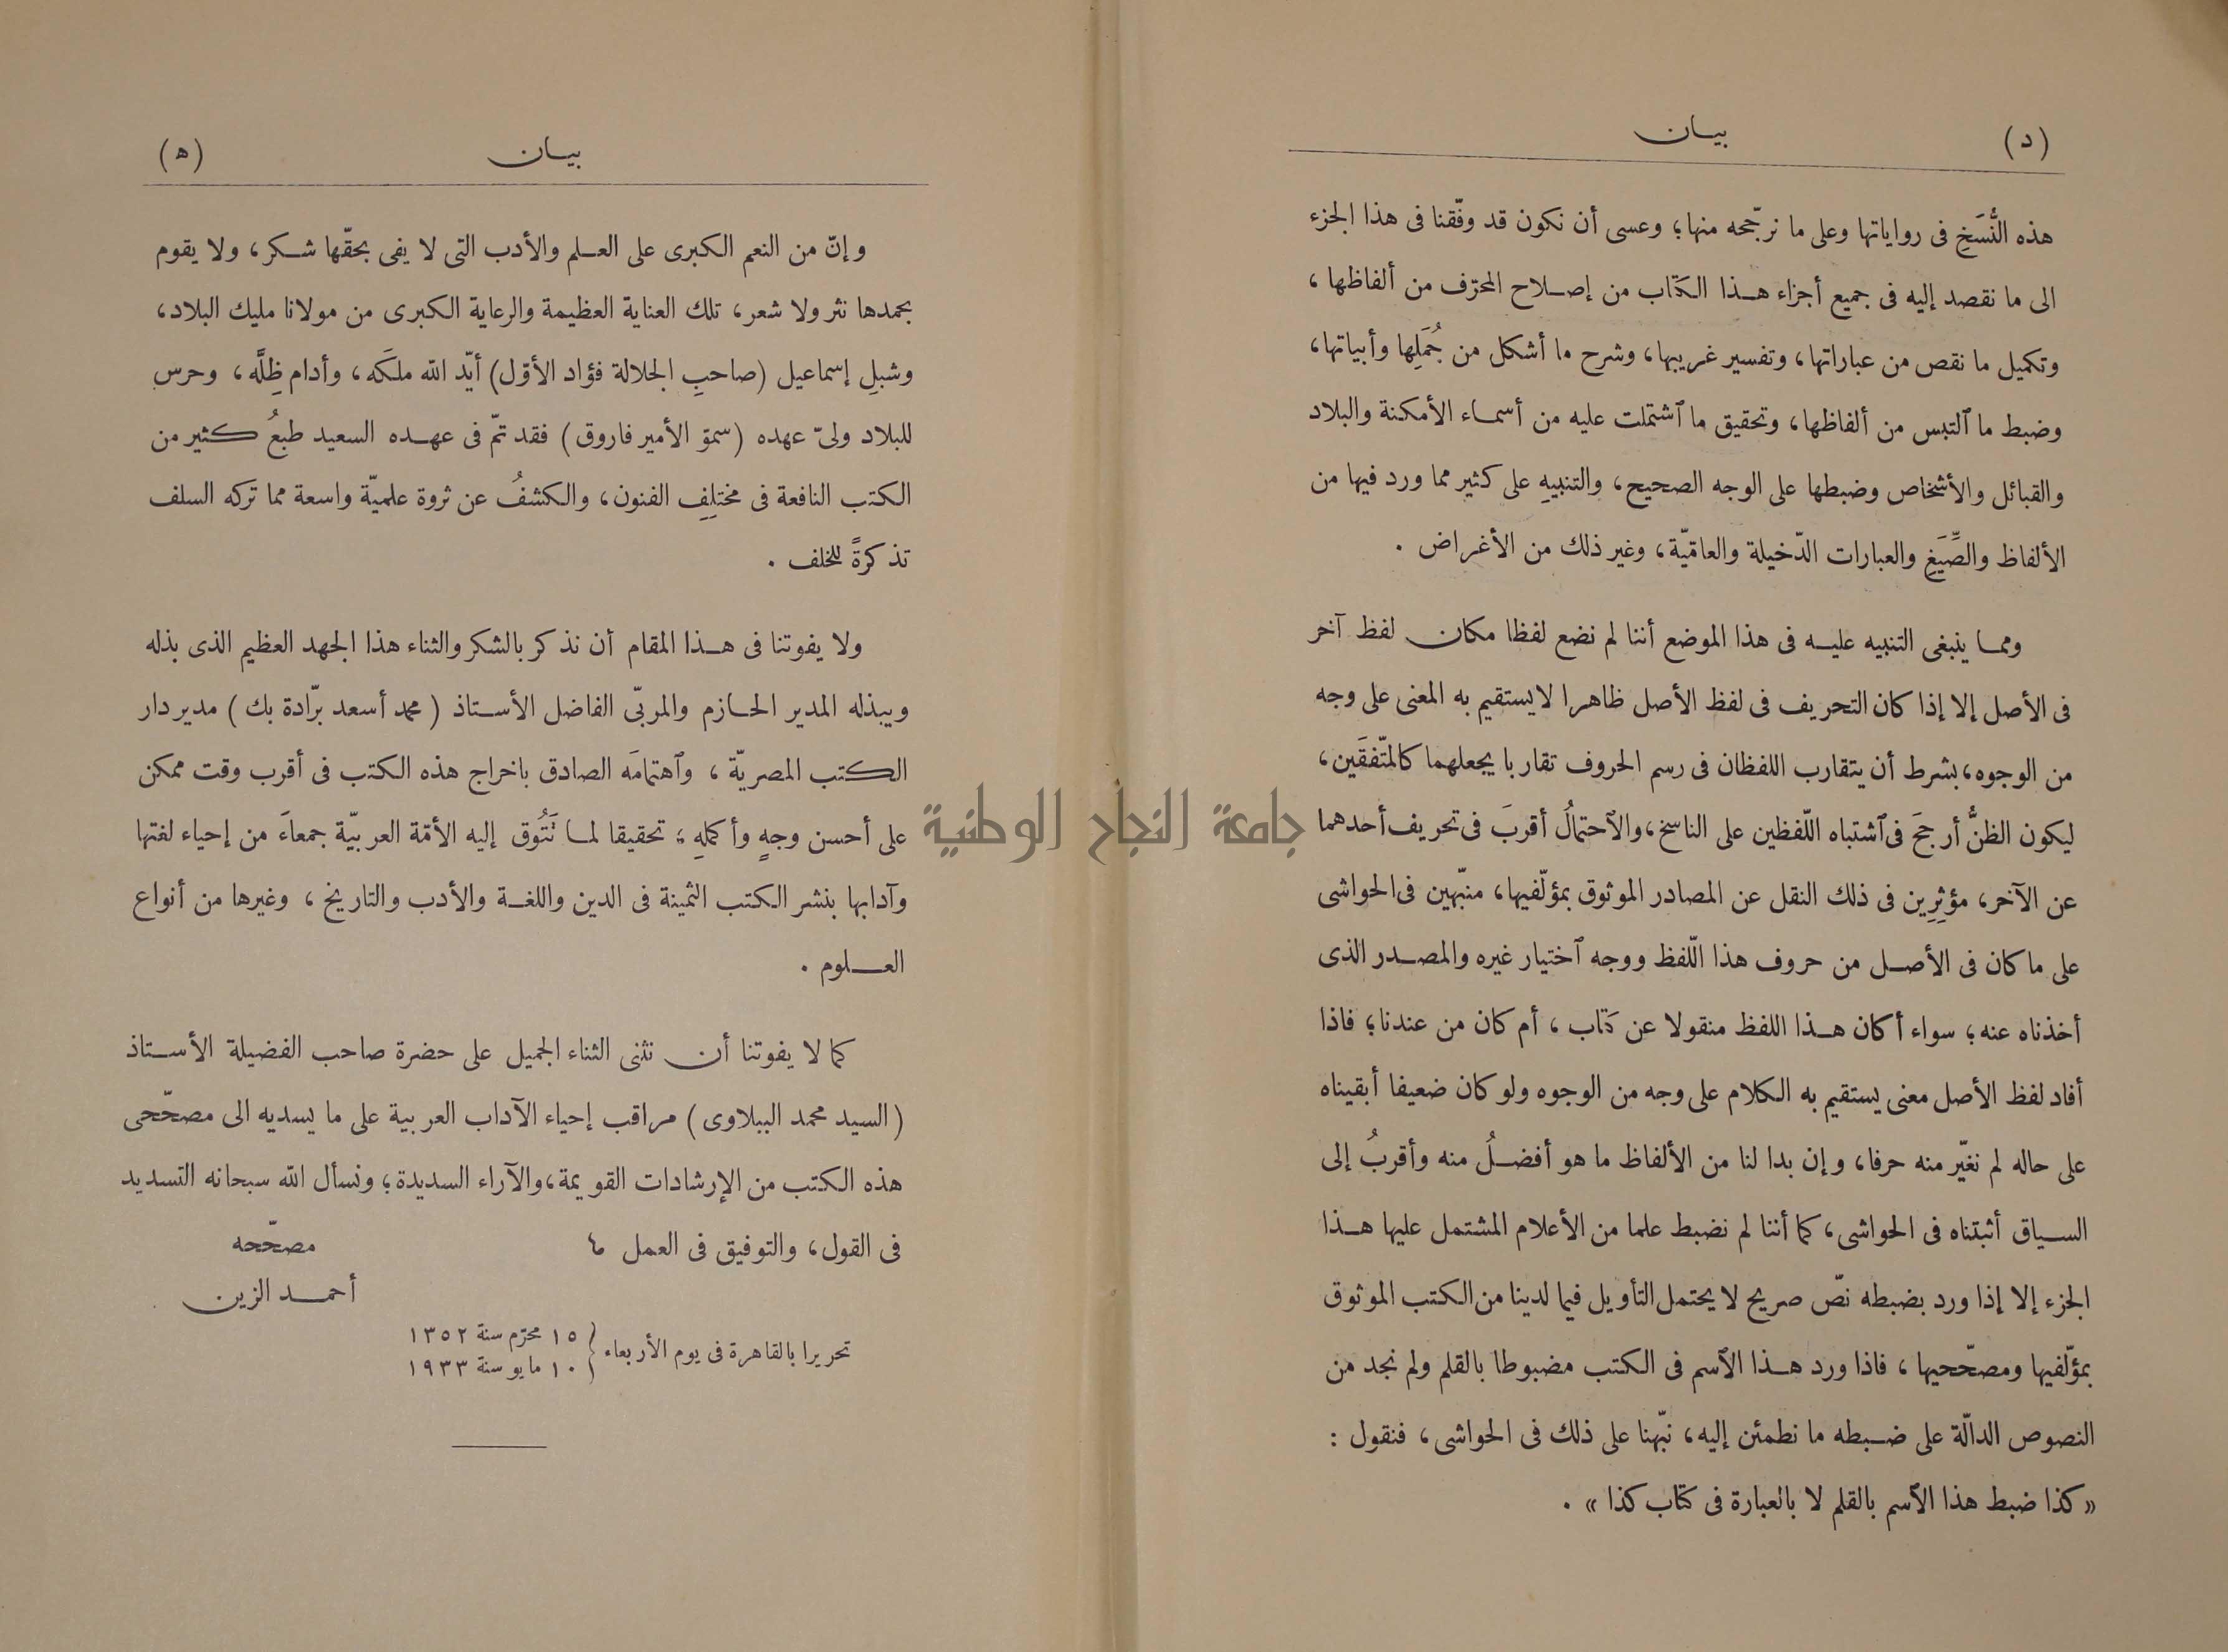 (د)
بيــان
هذه النُّسَخِ فى رواياتها وعلى ما نرجّحه منها؛ وعسى أن نكون قد وفّقنا فى هذا الجزء
الى ما نقصد إليه فى جميع أجزاء هــذا الكتاب من إصــلاح المحرّف من ألفاظها ،
وتكميل ما نقص من عباراتها، وتفسير غريبها، وشرح ما أشكل من جُمَلِها وأبياتها،
وضبط ما ٱلتبس من ألفاظها، وتحقيق ما ٱشتملت عليه من أسمــاء الأمكنة والبلاد
والقبائل والأشخاص وضبطها على الوجه الصحيح، والتنبيهِ على كثير مما ورد فيها من
الألفاظ والصِّيَغِ والعبارات الدّخيلة والعامّيّة، وغير ذلك من الأغراض .
وممــا ينبغى التنبيه عليــه فى هذا الموضع أننا لم نضع لفظا مكان لفظ آخر
فى الأصل إلا إذا كان التحريف فى لفظ الأصل ظاهرا لا يستقيم به المعنى على وجه
من الوجوه، بشرط أن يتقارب اللفظان فى رسم الحروف تقاربا يجعلهما كالمتّفقَين،
ليكون الظنُّ أرجحَ فى ٱشتباه اللّفظين على الناسخ، والاحتمالُ أقربَ فى تحريف أحدهما
عن الآخر، مؤثِرِين فى ذلك النقل عن المصادر الموثوق بمؤلّفيها، منبّهين فى الحواشى
على ما كان فى الأصــل من حروف هذا اللّفظ ووجه ٱختيار غيره والمصــدر الذى
أخذناه عنه؛ سواء أكان هــذا اللفظ منقولا عن كتاب ، أم كان من عندنا؛ فاذا
أفاد لفظ الأصل معنى يستقيم به الكلام على وجه من الوجوه ولو كان ضعيفا أبقيناه
على حاله لم نغيّر منه حرفا، وإن بدا لنا من الألفاظ ما هو أفضــلُ منه وأقربُ إلى
الســياق أثبتناه فى الحواشى، كما أننا لم نضبط علما من الأعلام المشتمل عليها هــذا
الجزء إلا إذا ورد بضبطه نصّ صريح لا يحتمل التأويل فيما لدينا من الكتب الموثوق
بمؤلّفيها ومصحّحيها ، فاذا ورد هــذا الاسم فى الكتب مضبوطا بالقلم ولم نجد من
النصوص الدالّة على ضــبطه ما نطمئن إليه، نبّهنا على ذلك فى الحواشى ، فنقول :
«كذا ضبط هذا الاسم بالقلم لا بالعبارة فى كتاب كذا» .
(ه)
بيــان
وإنّ من النعم الكبرى على العــلم والأدب التى لا يفى بحقّها شــكر، ولا يقوم
بحمدها نثر ولا شعر، تلك العناية العظيمة والرعاية الكبرى من مولانا مليك البلاد،
وشبلِ إسماعيل (صاحبِ الجلالة فؤاد الأوّل) أيّد الله ملكَه، وأدام ظِلَّه، وحرس
للبلاد ولىّ عهده (سموّ الأمير فاروق) فقد تمّ فى عهــده السعيد طبعُ كثير من
الكتب النافعة فى مختلِفِ الفنون، والكشفُ عن ثروة علميّة واسعة مما تركه السلف
تذكرةً للخلف .
ولا يفوتنا فى هــذا المقام أن نذكر بالشكر والثناء هذا الجهد العظيم الذى بذله
ويبذله المدير الحــازم والمربّى الفاضل الأســتاذ (محمد أسعد برّادة بك) مدير دار
الكتب المصريّة ، وٱهتمامَه الصادق باخراج هذه الكتب فى أقرب وقت ممكن
على أحسن وجهٍ وأكملِهِ ؛ تحقيقا لمــا تَتُوق إليه الأمّة العربيّة جمعاءَ من إحياء لغتها
وآدابها بنشر الكتب الثمينة فى الدين واللغــة والأدب والتاريخ ، وغيرها من أنواع
العــلوم .
كما لا يفوتنا أن نثنى الثناء الجميل على حضرة صاحب الفضيلة الأســتاذ
(السيد محمد الببلاوى) مراقب إحياء الآداب العربية على ما يسديه الى مصحّحى
هذه الكتب من الإرشادات القويمة، والآراء السديدة؛ ونسأل الله سبحانه التسديد
فى القول، والتوفيق فى العمل
مصحّحه
أحمــد الزين
تحريرا بالقاهرة فى يوم الأربعاء
١٥ محرّم سنة ١٣٥٢
١٠ مايو سنة ١٩٣٣
جامعة النجاح الوطنية